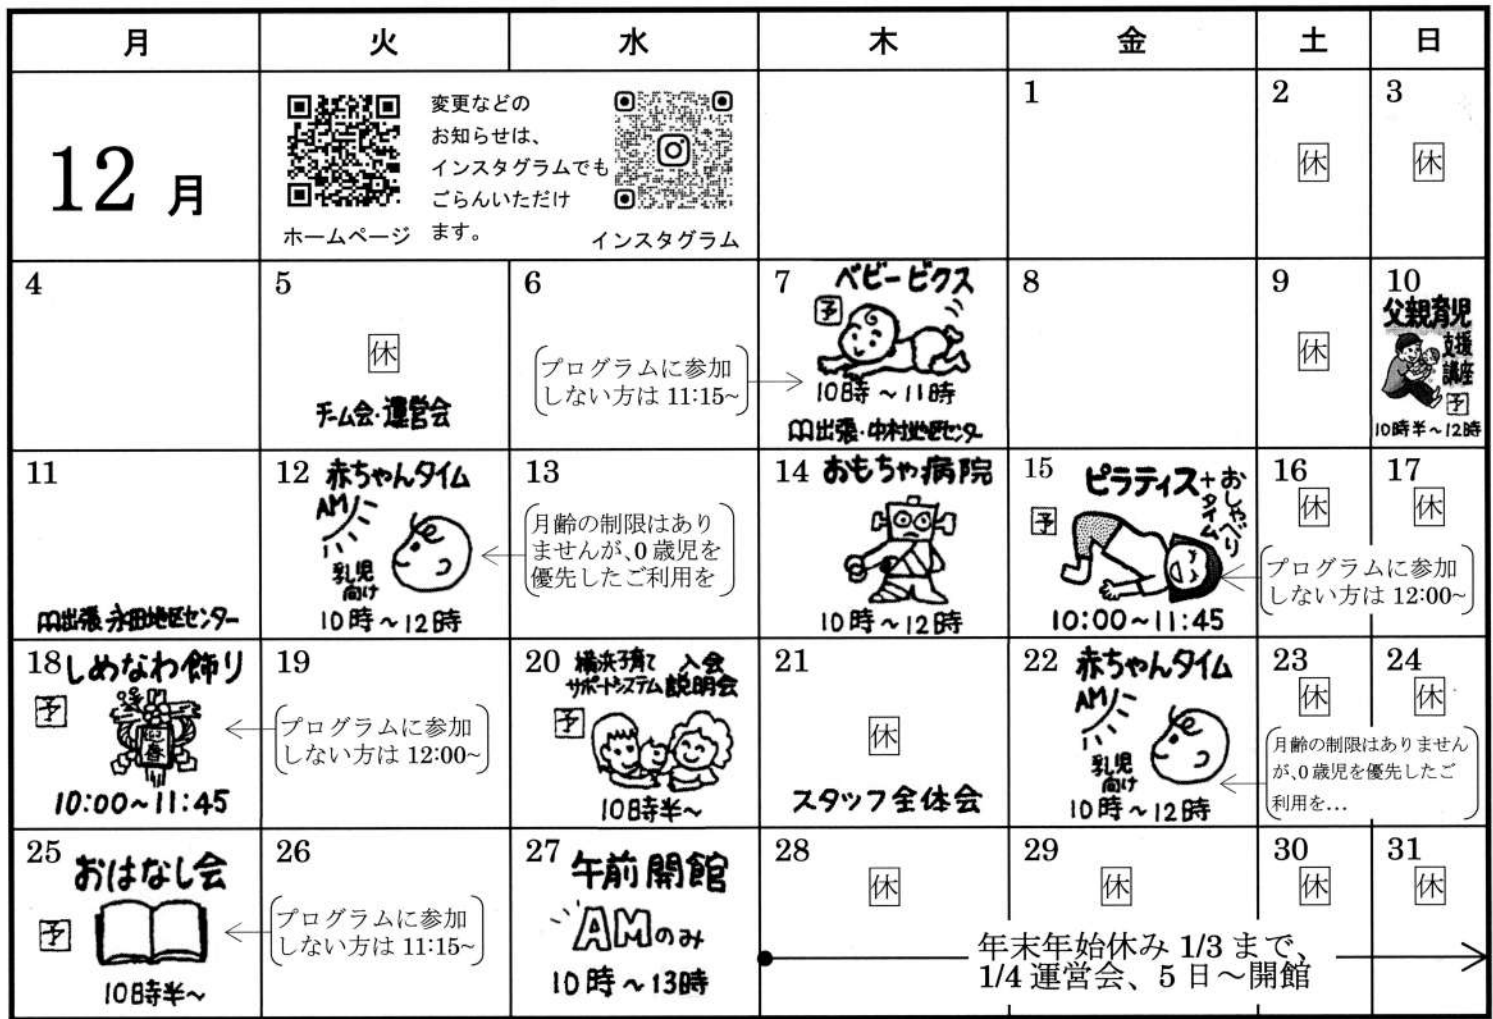 月 火 水 木 金 土 日
12 月
変更などの
お知らせは、
インスタグラムでも
ごらんいただけ
ます。
ホームページ
インスタグラム
1
2
休
3
休
4
5
休
チーム会・運営会
6
プログラムに参加
しない方は 11:15~
7 ベビービクス
予
10時～11時
出張・中村地区センター
8
9
休
10
父親育児
支援
講座
予
10時半～12時
11
出張 永田地区センター
12 赤ちゃんタイム
AM
乳児
向け
10時～12時
13
月齢の制限はあり
ませんが、0歳児を
優先したご利用を
14 おもちゃ病院
10時～12時
15 ピラティス
+おしゃべり
タイム
予
10:00～11:45
16
休
17
休
プログラムに参加
しない方は 12:00~
18 しめなわ飾り
予
迎春
10:00～11:45
19
プログラムに参加
しない方は 12:00~
20 横浜子育て
サポートシステム
入会
説明会
予
10時半～
21
休
スタッフ全体会
22 赤ちゃんタイム
AM
乳児
向け
10時～12時
23
休
24
休
月齢の制限はありません
が、0歳児を優先したご
利用を…
25 おはなし会
予
10時半～
26
プログラムに参加
しない方は 11:15~
27 午前開館
AMのみ
10時～13時
28
休
29
休
30
休
31
休
年末年始休み 1/3 まで、
1/4 運営会、5 日～開館